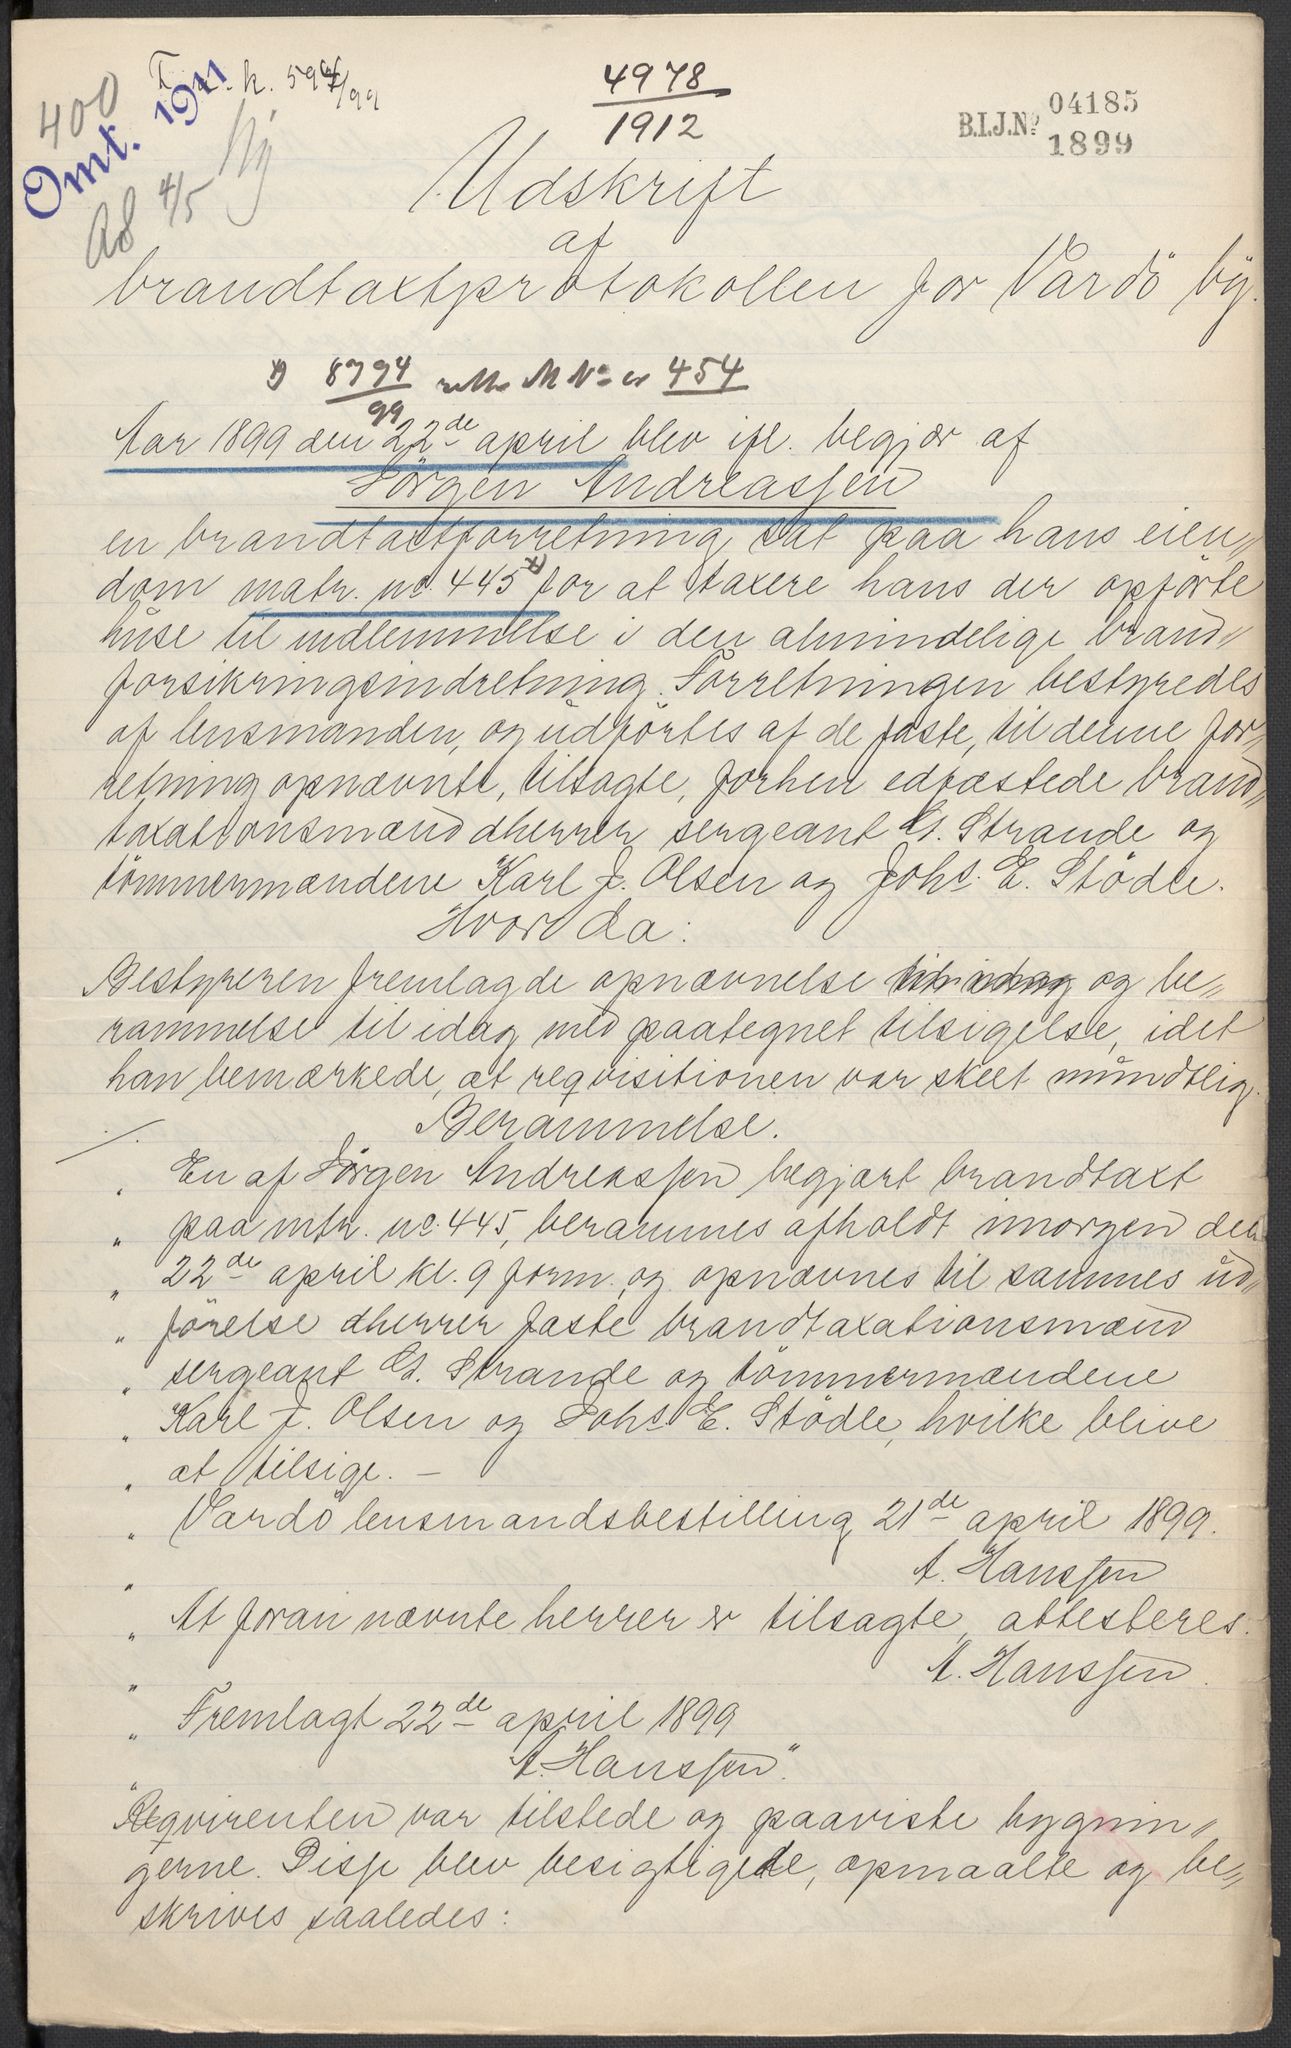 400
Omt. 1911
k. 594/99
Ad 4/5
4978
1912
B.I.J.No 04185
1899
Udskrift
af
brandtaxtprotokollen for Vardö by.
*) 8794/99 rette M No er 454
Aar 1899 den 22de april blev ifl. begjær af
Jörgen Andreassen
en brandtaxtforretning sat paa hans eien„
dom matr. no. 445 *) for at taxere hans der opförte
huse til indlemmelse i den almindelige brand„
forsikringsindretning. Forretningen bestyredes
af lensmanden, og udförtes af de faste, til denne for„
retning opnævnte, tilsagte, forhen edfæstede brand„
taxationsmænd dherrer sergeant G. Strande og
tömmermændene Karl J. Olsen og Johs. E. Stödle.
Hvor da:
Bestyreren fremlagde opnævnelse og be„
rammelse til idag med paategnet tilsigelse, idet
han bemærkede, at reqvisitionen var skeet mündtlig.
Berammelse.
./.
„ En af Jörgen Andreassen begjært brandtaxt
„ paa mtr. no. 445, berammes afholdt imorgen den
„ 22de april kl. 9 form. og opnævnes til sammes ud„
„ förelse dherrer faste brandtaxationsmænd
„ sergeant G. Strande og tömmermændene
„ Karl J. Olsen og Johs E. Stödle, hvilke blive
„ at tilsige. –
„ Vardö lensmandsbestilling 21de april 1899.
„ A. Hanssen
„ At foran nævnte herrer er tilsagte, attesteres.
„ A. Hanssen.
„ Fremlagt 22de april 1899
„ A. Hanssen".
Reqvirenten var tilstede og paaviste bygnin„
gerne. Disse blev besigtigede, opmaalte og be„
skrives saaledes: